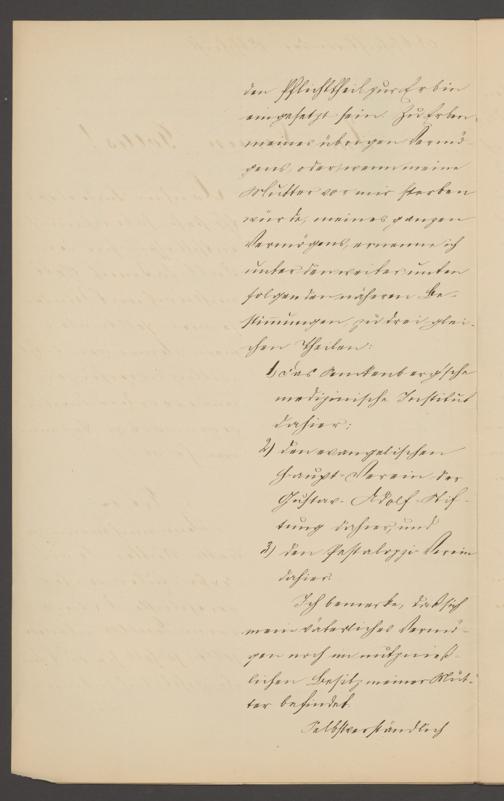 den Pflichttheil zur Erbin
eingesetzt sein. Zu Erben
meines übrigen Vermö-
gens, oder, wenn meine
Mutter vor mir sterben
würde, meines ganzen
Vermögens, ernenne ich
unter den weiter unten
folgenden näheren Be-
stimmungen zu drei glei-
chen Theilen:
1) das Senkenbergische
medizinische Institut
dahier;
2) den evangelischen
Haupt-Verein der
Gustav-Adolf-Stif-
tung dahier, und
3) den Pestalozzi-Verein
dahier.
Ich bemerke, daß sich
mein väterliches Vermö-
gen noch im nutznieß-
lichen Besitz meiner Mut-
ter befindet.
Selbstverständlich